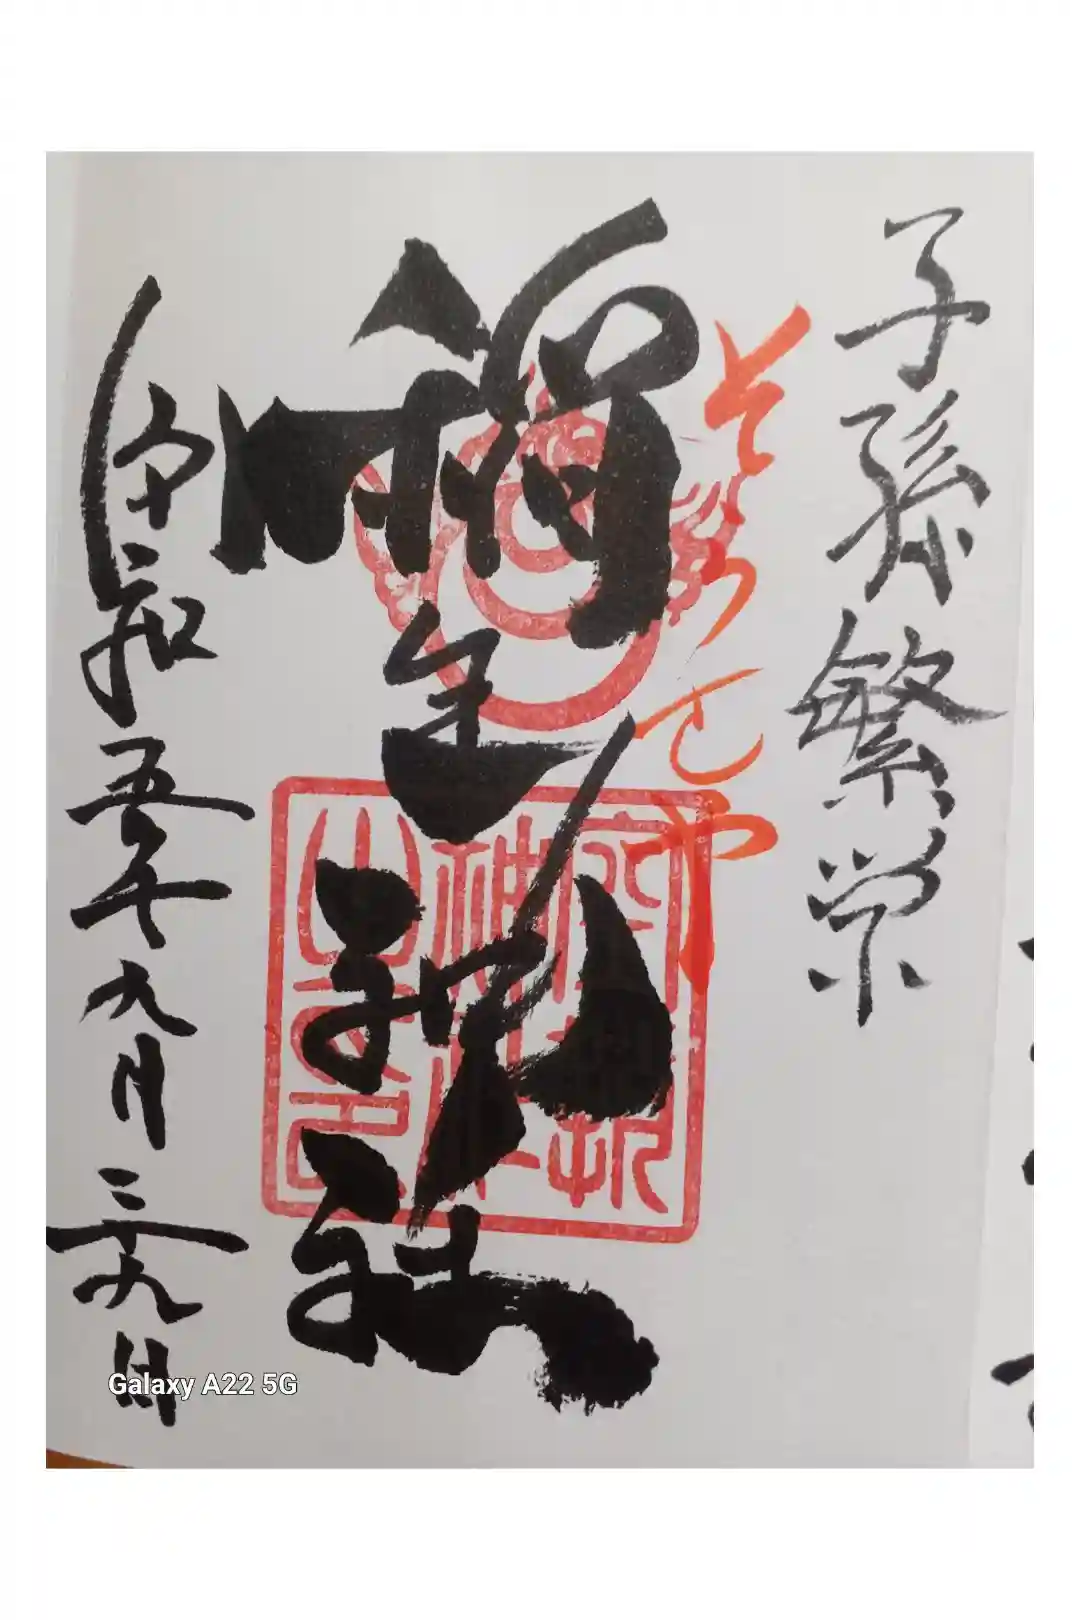 子孫繁栄
そらさや
稲生神社
令和五年九月二十九日
Galaxy A22 5G